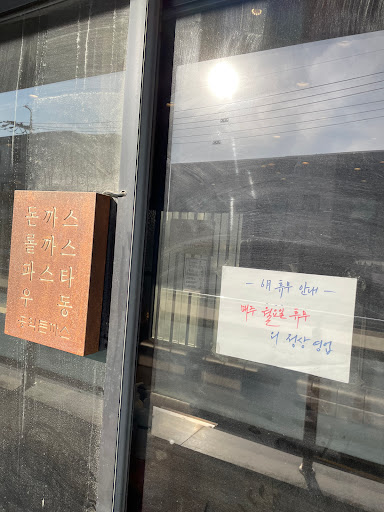 돈까스
롤까스
파스타
우동
- 6月 휴무 안내 -
매주 월요일 휴무
외 정상 영업